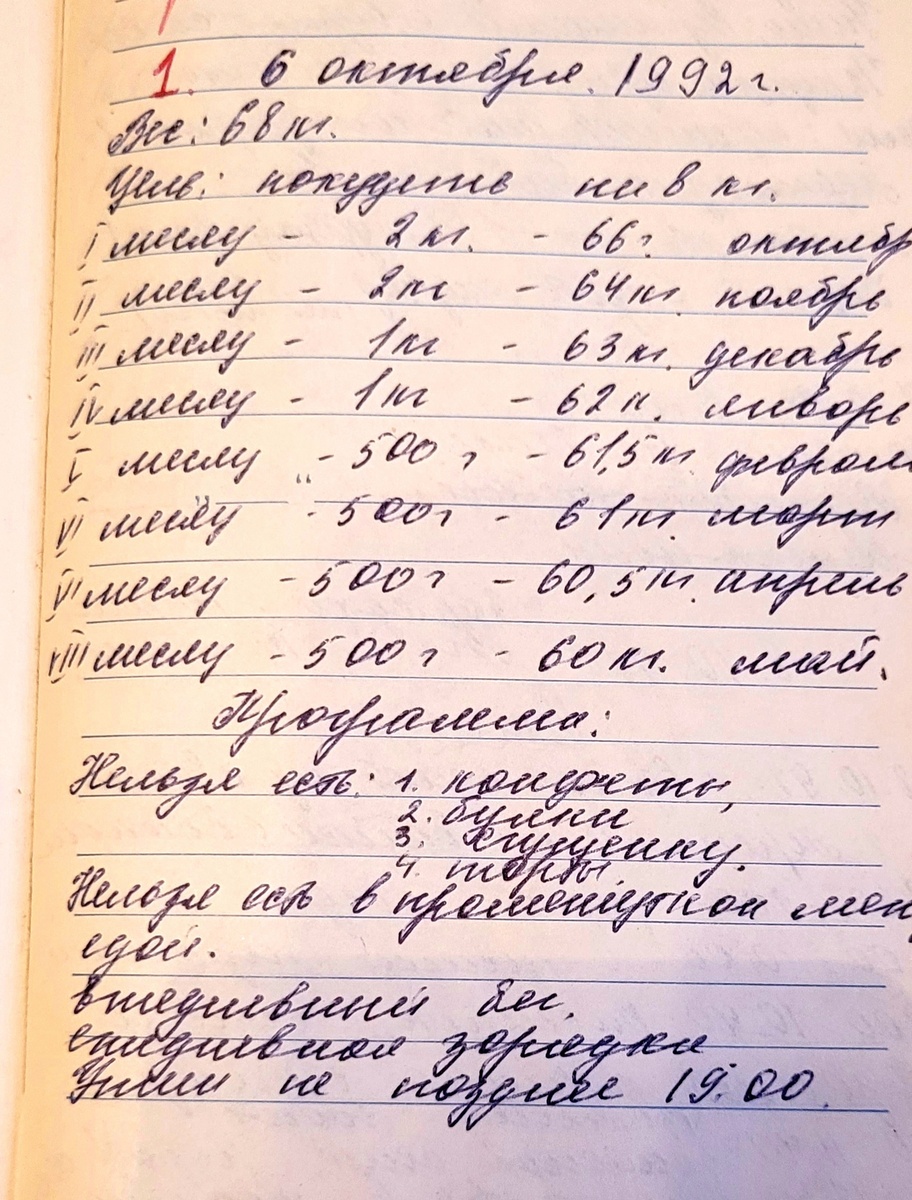 1. 6 октября. 1992 г.
Вес: 68 кг.
Цель: похудеть на 8 кг.
I месяц - 2 кг. - 66 г октябр
II месяц - 2 кг - 64 кг. ноябрь
III месяц - 1 кг - 63 кг. декабрь
IV месяц - 1 кг - 62 к. январь
V месяц - 500 г - 61,5 кг феврал
VI месяц - 500 г - 61 кг март
VII месяц - 500 г - 60,5 кг. апрель
VIII месяц - 500 г - 60 кг. май.
Программа:
Нельзя есть: 1. конфеты,
2. булки
3. сгущенку.
4. торты.
Нельзя есть в промежутках меж
едой.
ежедневный бег.
ежедневная зарядка
Ужин не позднее 19.00.